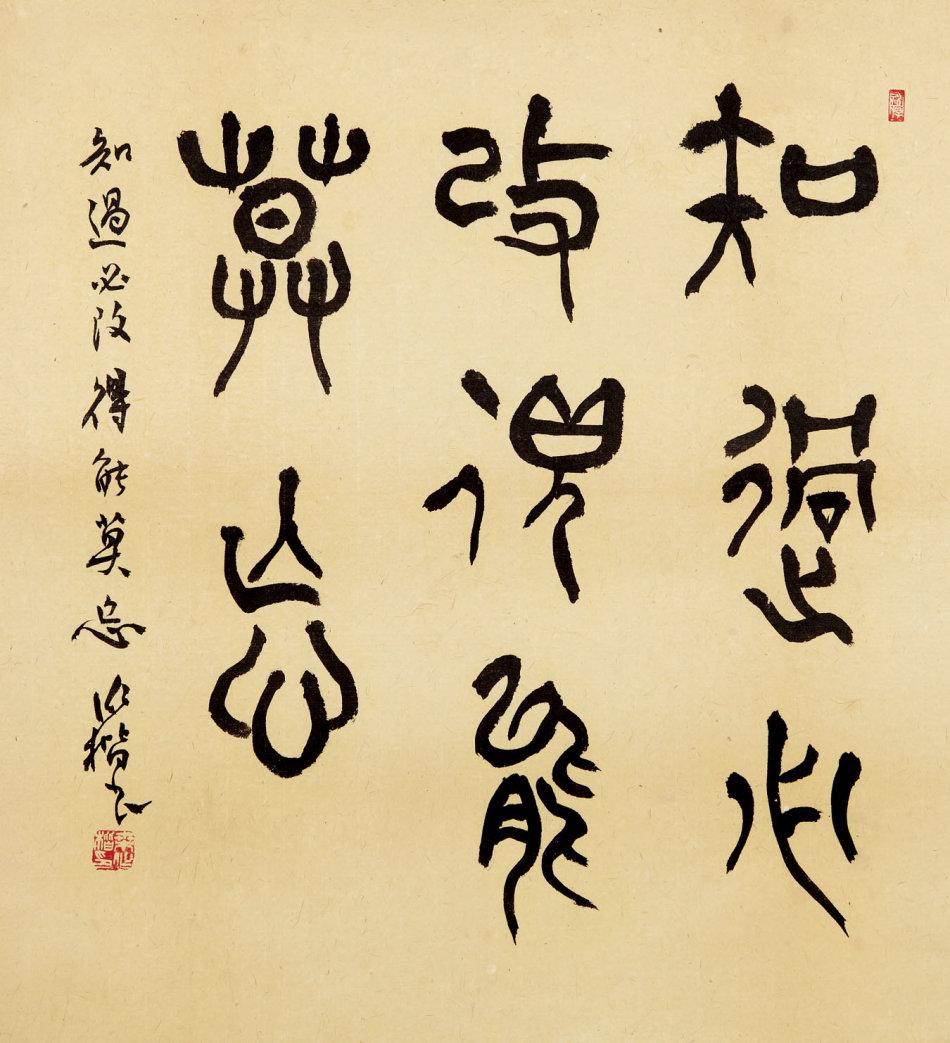 知過必
改得能
莫忘
知過必改得能莫忘 楷书